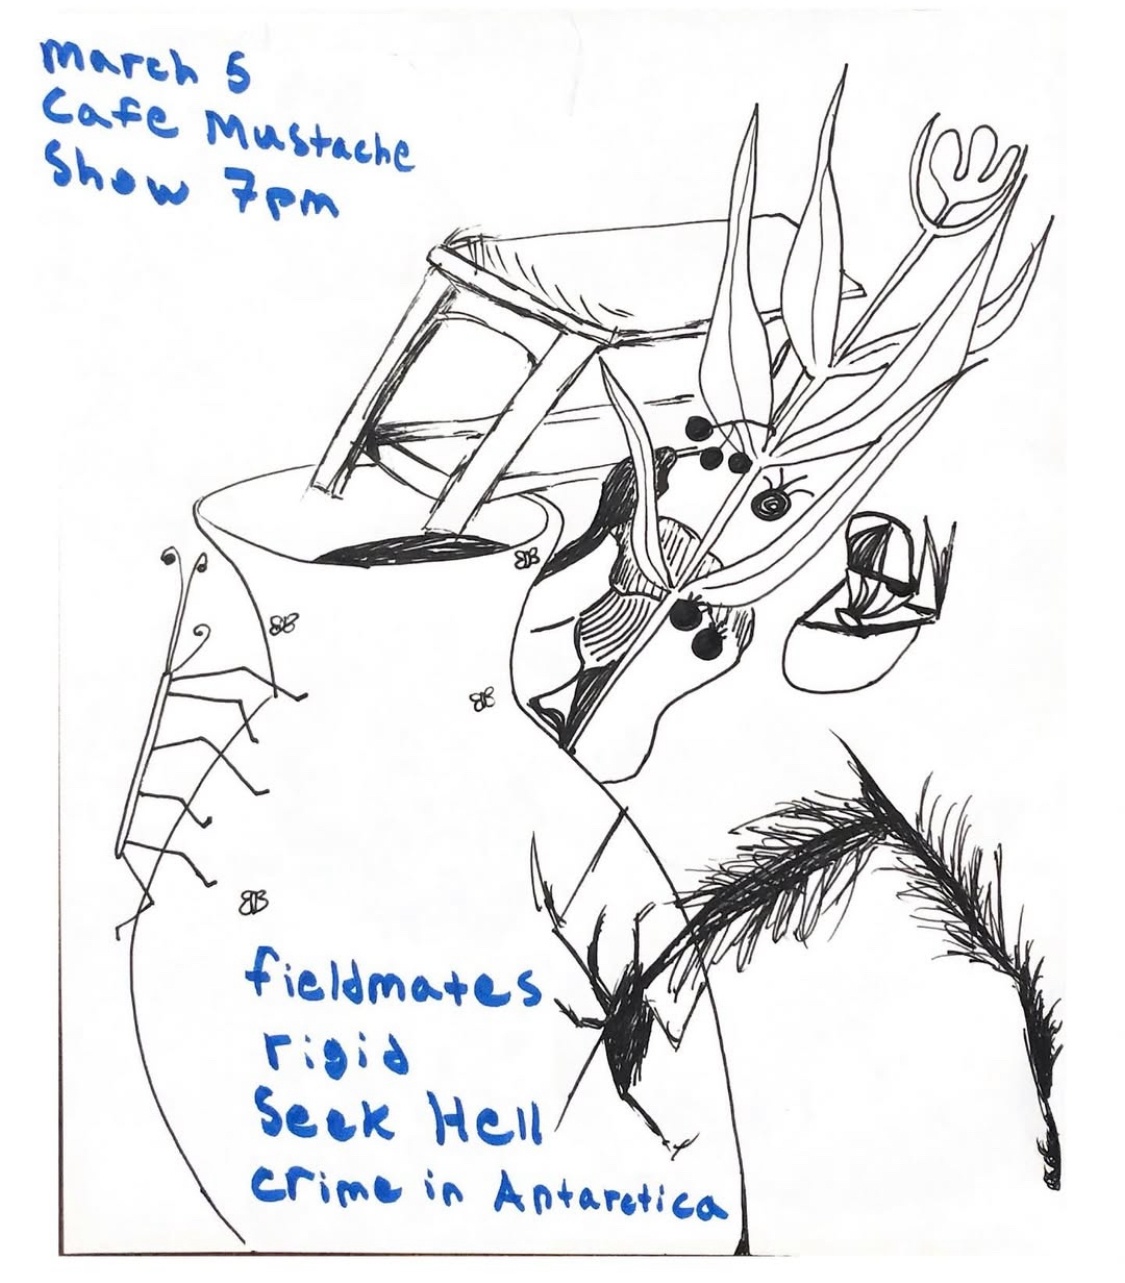 March 5
Cafe Mustache
Show 7pm
fieldmates
rigid
Seek Hell
crime in Antarctica